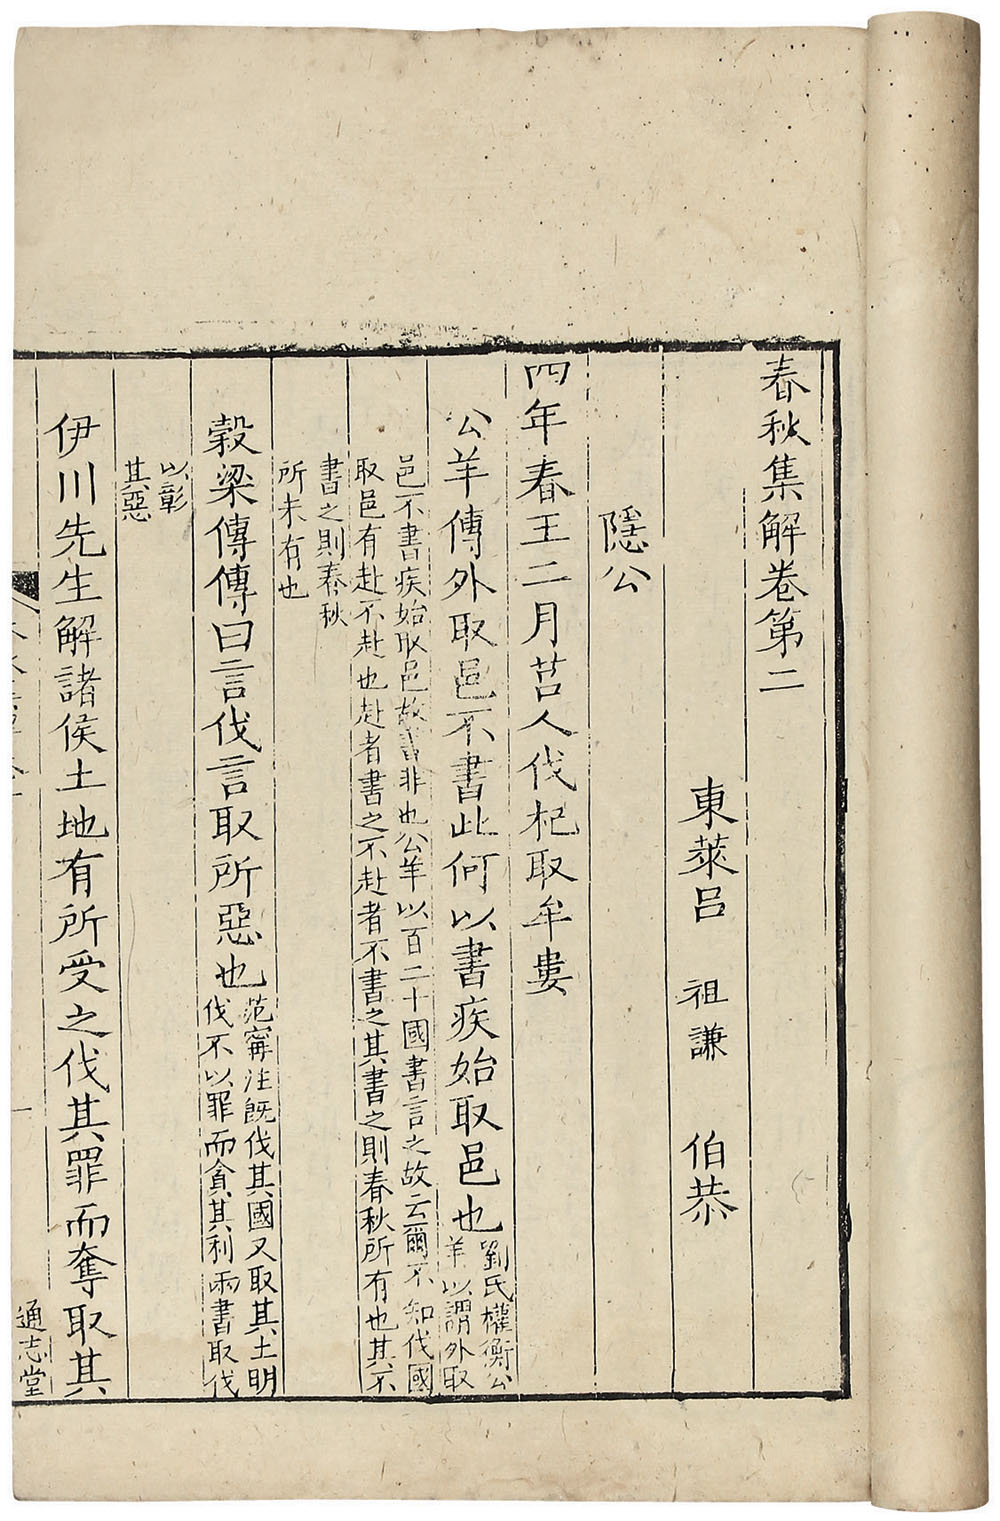 春秋集解卷第二
東萊呂 祖謙 伯恭
隱公
四年春王二月莒人伐杞取牟婁
公羊傳外取邑不書此何以書疾始取邑也劉氏權衡公
羊以謂外取
邑不書疾始取邑故書非也公羊以百二十國書言之故云爾不知伐國
取邑有赴不赴也赴者書之不赴者不書之其書之則春秋所有也其不
書之則春秋
所未有也
穀梁傳傳曰言伐言取所惡也范甯注既伐其國又取其土明
伐不以罪而貪其利兩書取伐
以彰
其惡
伊川先生解諸侯土地有所受之伐其罪而奪取其
通志堂